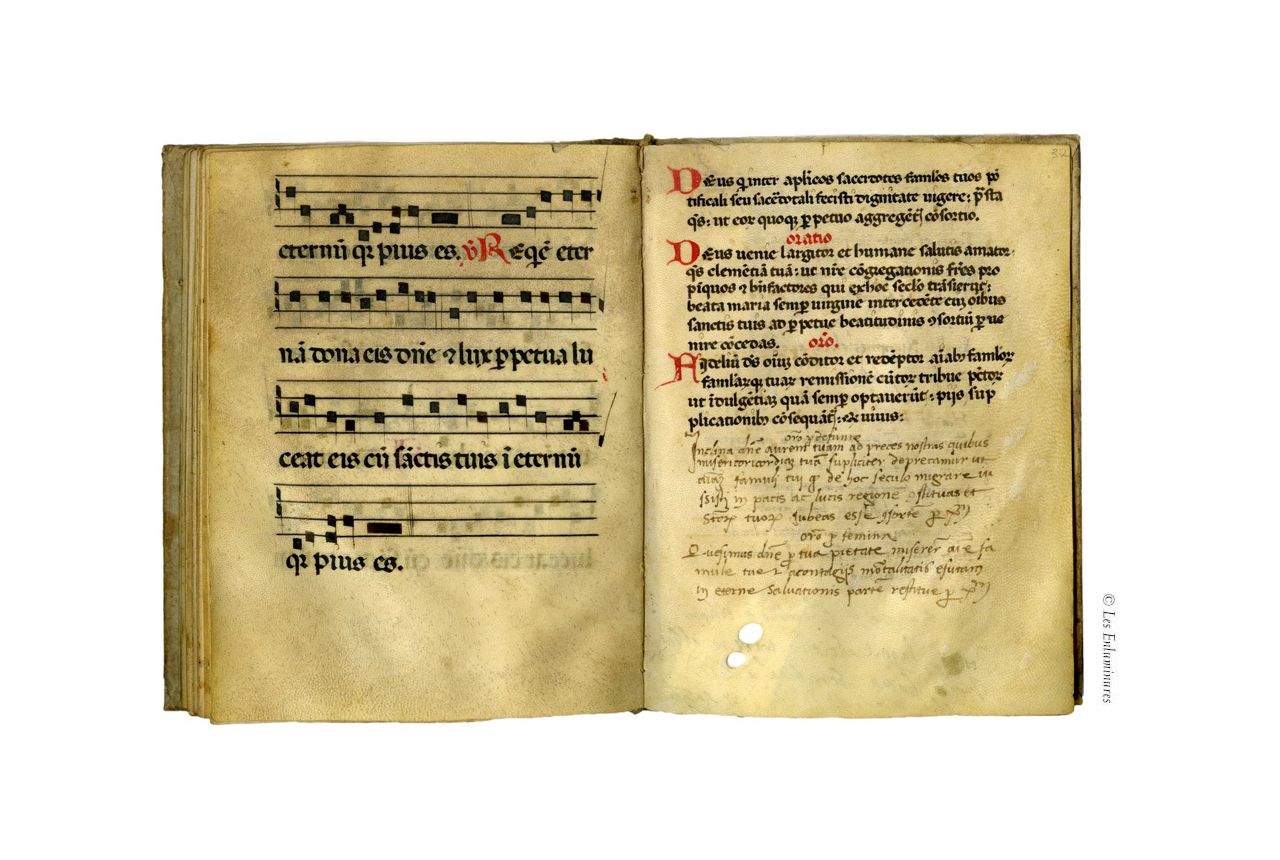 eternū qꝛ pius es. ℣ Reqē eter
nā dona eis dn̄e ⁊ lux ꝑpetua lu
ceat eis cū sāctis tuis ī eternū
qꝛ pius es.
32
Deus q̄ inter apl̄icos sacerdotes faml̄os tuos pō
tificali seu sac̄dotali fecisti dignitate uigere: p̄sta
qs̄: ut eoꝝ quoqꝫ ꝑpetuo aggregēt̄ cōsortio.
oratio
Deus uenie largitor et humane salutis amator
qs̄ clemētiā tuā: ut nr̄e cōgregationis fr̄es pro
pīquos ⁊ bn̄factores qui ex hoc seclo trāsierūt:
beata maria semꝑ uirgine intercedēte cū oībus
sanctis tuis ad ꝑpetue beatitudinis ꝯsortiū ꝑue
nire cōcedas. orō.
Fideliū ds̄ oīuꝫ cōditor et redēptor aīabꝫ famloꝝ
famlaꝝqꝫ tuaꝝ remissionē cūtoꝝ tribue pc̄toꝝ
ut īdulgētiaꝫ quā semꝑ optauerūt: pijs sup
plicationibꝫ cōsequāt̄: Qui uiuis:
orō ꝓ defuncto
Inclina dn̄e aurem tuam ad preces nostras quibus
misericoricordiaꝫ tuā supliciter deprecamur ut
aīaꝫ famuli tui q̄ de hoc seculo migrare iu
ssisti in pacis ac lucis regione ꝯstituas et
Sctoꝝ tuoꝝ iubeas esse ꝯsorte ꝑ xp̄m
orō ꝓ femina
Quesumus dn̄e ꝓ tua pietate miserere aīe fa
mule tue ⁊ a contagijs mortalitatis exutam
in eterne saluationis partē restitue ꝑ xp̄m
© Les Enluminures